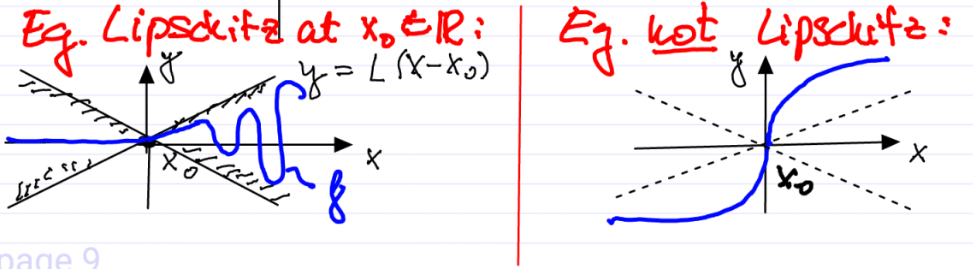 Eg. Lipschitz at x₀ ∈ ℝ:
y
y = L (x-x₀)
x₀
x
f
Eg. not Lipschitz:
y
x
x₀
page 9